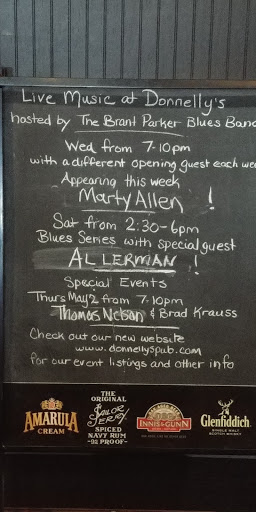 Live Music at Donnelly's
hosted by The Brant Parker Blues Band
Wed from 7-10pm
with a different opening guest each wee
Appearing this week
Marty Allen !
Sat from 2:30-6pm
Blues Series with special guest
AL LERMAN !
Special Events
Thurs May 2 from 7-10pm
Thomas Nelson & Brad Krauss
Check out our new website
www.donnellyspub.com
for our event listings and other info
AMARULA
CREAM
THE
ORIGINAL
Sailor
Jerry
SPICED
NAVY RUM
-92 PROOF-
INNIS&GUNN
Glenfiddich
SINGLE MALT
SCOTCH WHISKY